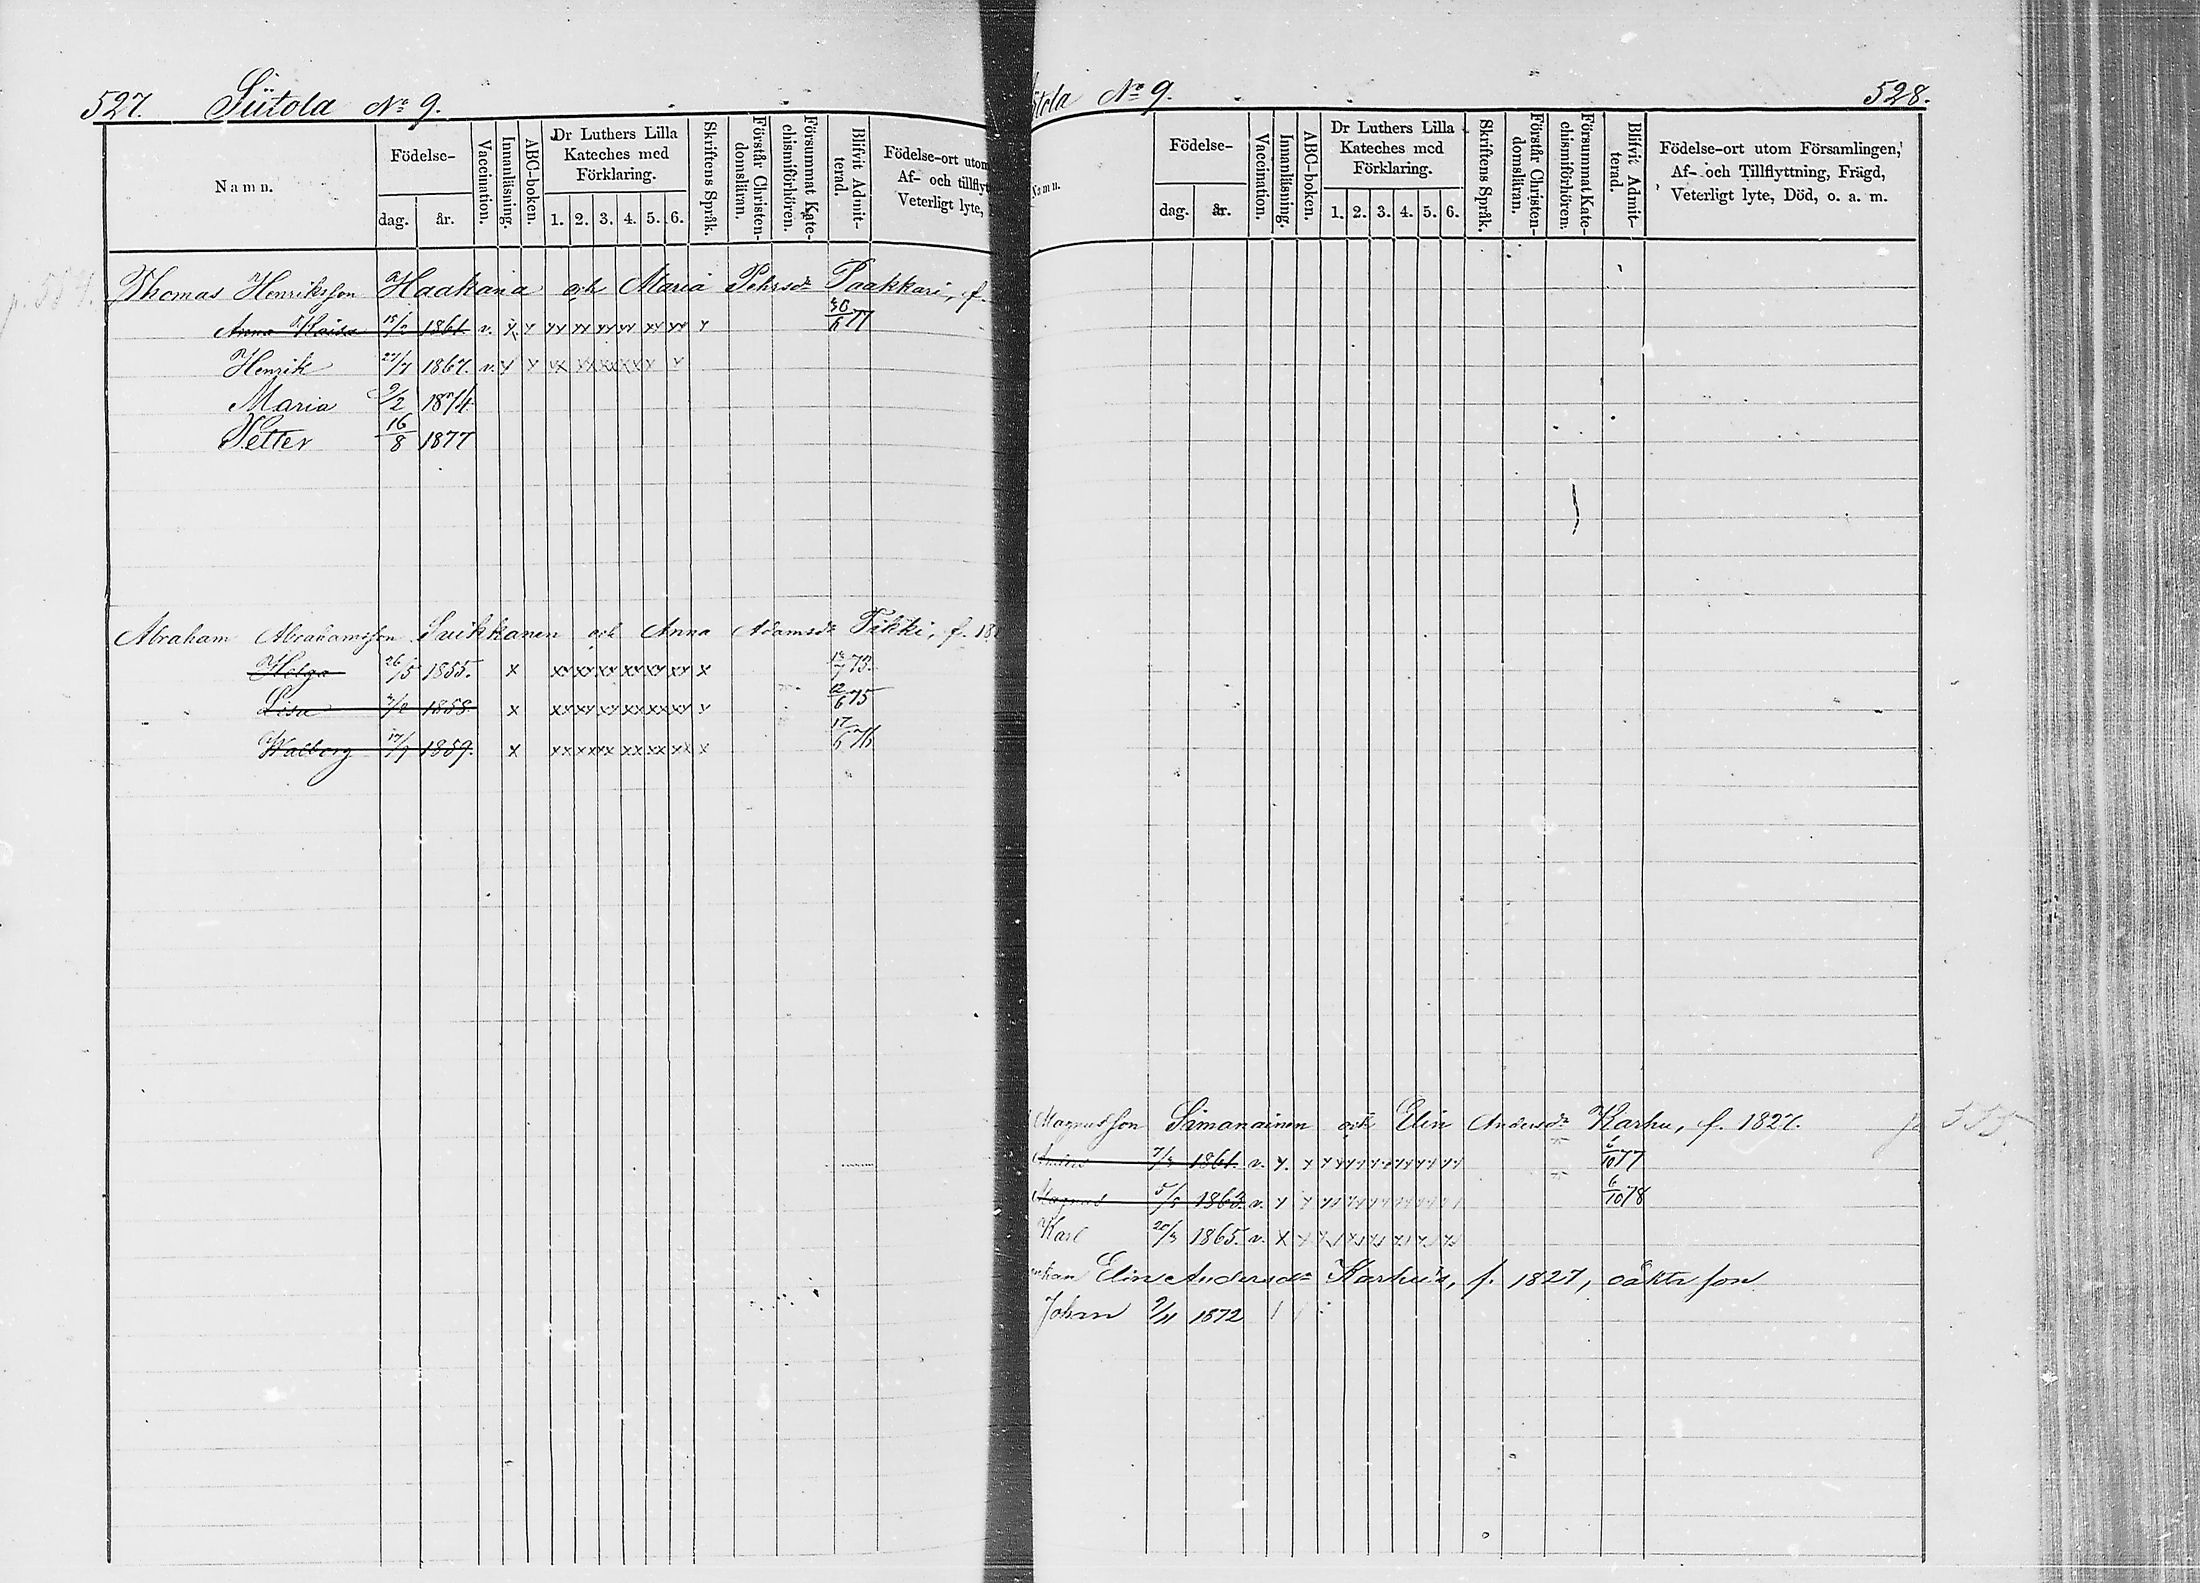 527. Siitola No 9.
Namn.
Födelse-
dag. år.
Vaccination.
Innanläsning.
ABC-boken.
Dr Luthers Lilla
Kateches med
Förklaring.
1. 2. 3. 4. 5. 6.
Skriftens Språk.
Förstår Christen-
domsläran.
Försummat Kate-
chismiförhören.
Blifvit Admit-
terad.
Födelse-ort utom
Af- och tillflyt
Veterligt lyte,
Thomas Henriksson Haakana och Maria Pehrsdr Paakkari, f.
Anna Kaisa 1861. v. x x xx xx xx xx xx xx x 30/6 77
Henrik 1867. v. x x xx xx xx xx x x
Maria 9/2 1874
Petter 16/8 1877
Abraham Abrahamsson Suikkanen och Anna Adamsdr Pikki, f. 18
Helga 26/5 1855. x xx xx xx xx xx xx x 73.
Lisa 1858. x xx xx xx xx xx xx x 12/6 75
Walborg 1859. x xx xx xx xx xx xx x 17/6 76
tola No 9. 528.
Namn.
Födelse-
dag. år.
Vaccination.
Innanläsning.
ABC-boken.
Dr Luthers Lilla
Kateches med
Förklaring.
1. 2. 3. 4. 5. 6.
Skriftens Språk.
Förstår Christen-
domsläran.
Försummat Kate-
chismiförhören.
Blifvit Admit-
terad.
Födelse-ort utom Församlingen,
Af- och Tillflyttning, Frägd,
Veterligt lyte, Död, o. a. m.
Magnusson Simanainen och Elin Andersdr Karhu, f. 1827.
1861. v. x. x xx xx xx xx xx xx 6/10 77
Magnus 1863. v. x x xx xx xx xx xx 6/10 78
Karl 20/3 1865. v. x x
enkan Elin Andersdr Karhu's, f. 1827, oäkta son
Johan 9/11 1872